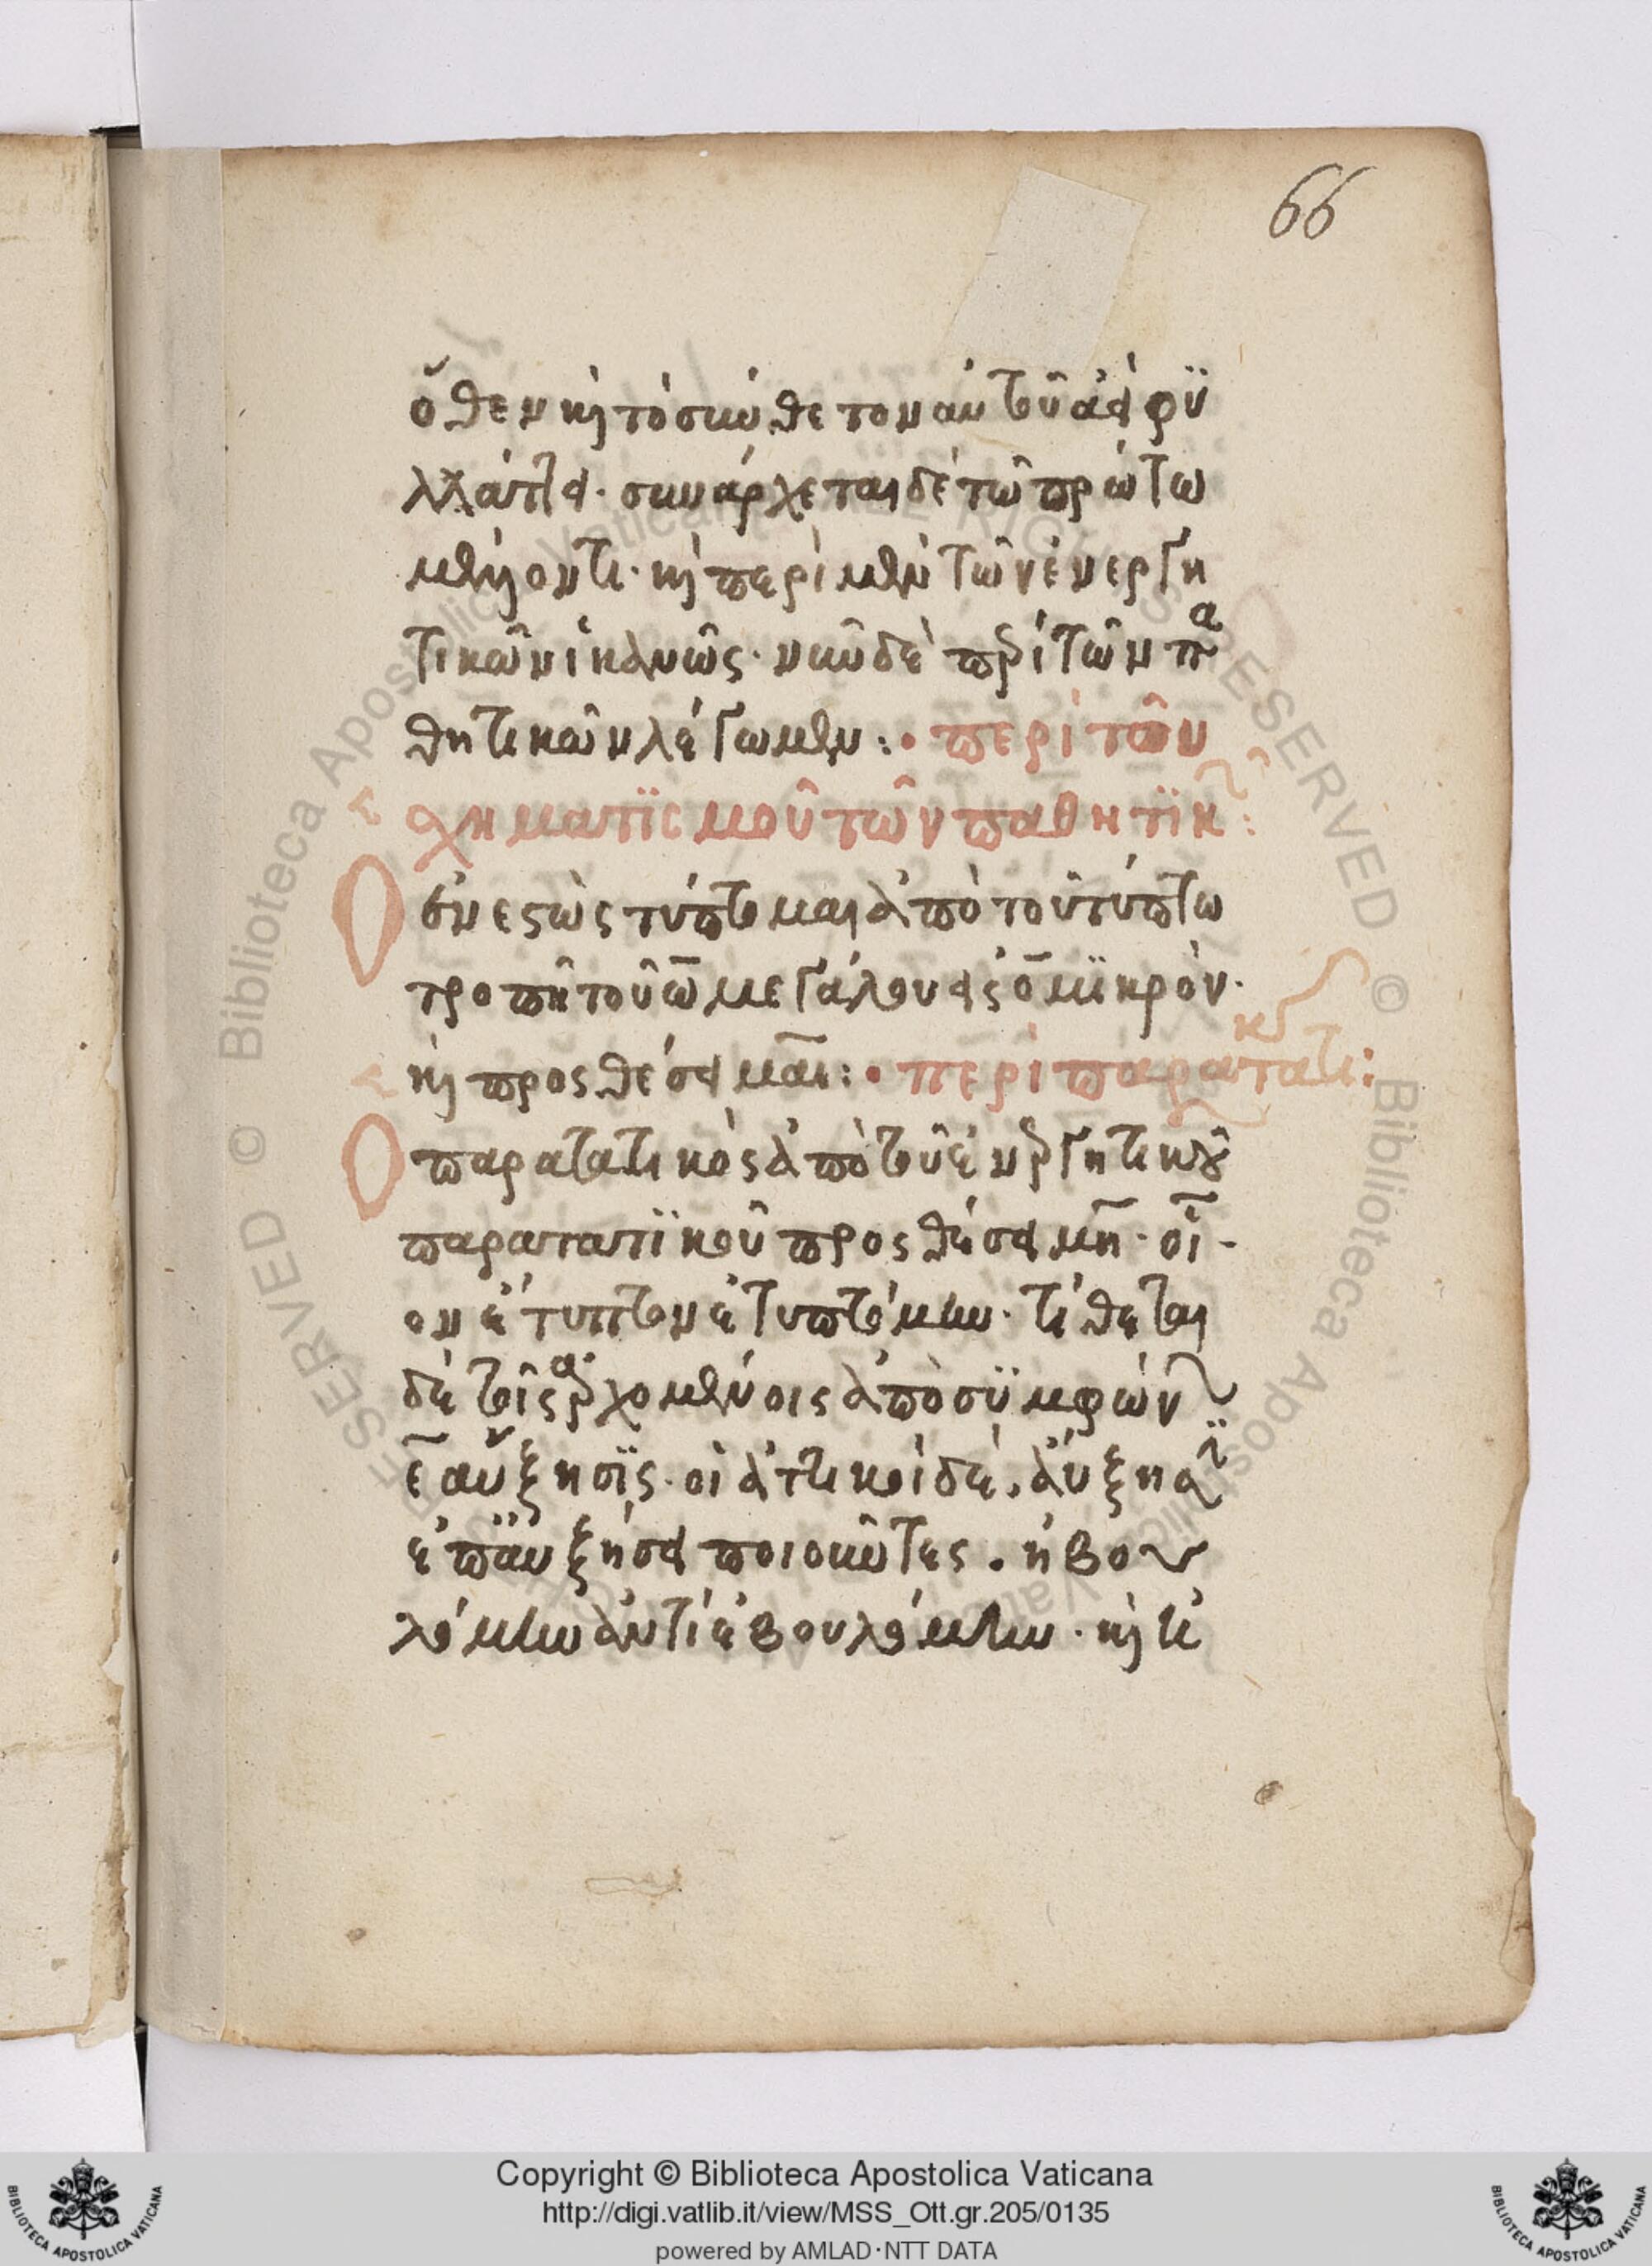 66
ὅθεν κὶ τὸ σύνθετον αὐτοῦ ἀεὶ φϋ
λλάττει. συνάρχεται δὲ τῶ πρώτω
μένοντι. κὶ περὶ μὲν τῶν ἐνεργη
τικῶν ἱκανῶς. νῦν δὲ περὶ τῶν πα
θητικῶν λέγωμεν:. περὶ τοῦ
σχηματϊσμοῦ τῶν παθητϊκῶν:
Ὁ ἐνεστὼς τύπτομαι ἀπὸ τοῦ τύπτω
τροπῆ τοῦ ω μεγάλου εἰς ο μϊκρὸν.
κὶ προσθέσει μαι:. περὶ παρατατικοῦ:
Ὁ παρατατικὸς ἀπὸ τοῦ ἐνεργητικοῦ
παρατατϊκοῦ προσθέσει μην. οἷ-
ον ἔτυπτον ἐτυπτόμην. τίθεται
δὲ τοῖς ἀρχομένοις ἀπὸ συμφώνων
ε αὔξησϊς. οἱ ἀττικοὶ δὲ, αὔξησιν
ἐπαυξήσει ποιοῦντες. ἠβου
λόμην ἀντὶ ἐβουλόμην. κὶ τί
Copyright © Biblioteca Apostolica Vaticana
http://digi.vatlib.it/view/MSS_Ott.gr.205/0135
powered by AMLAD·NTT DATA